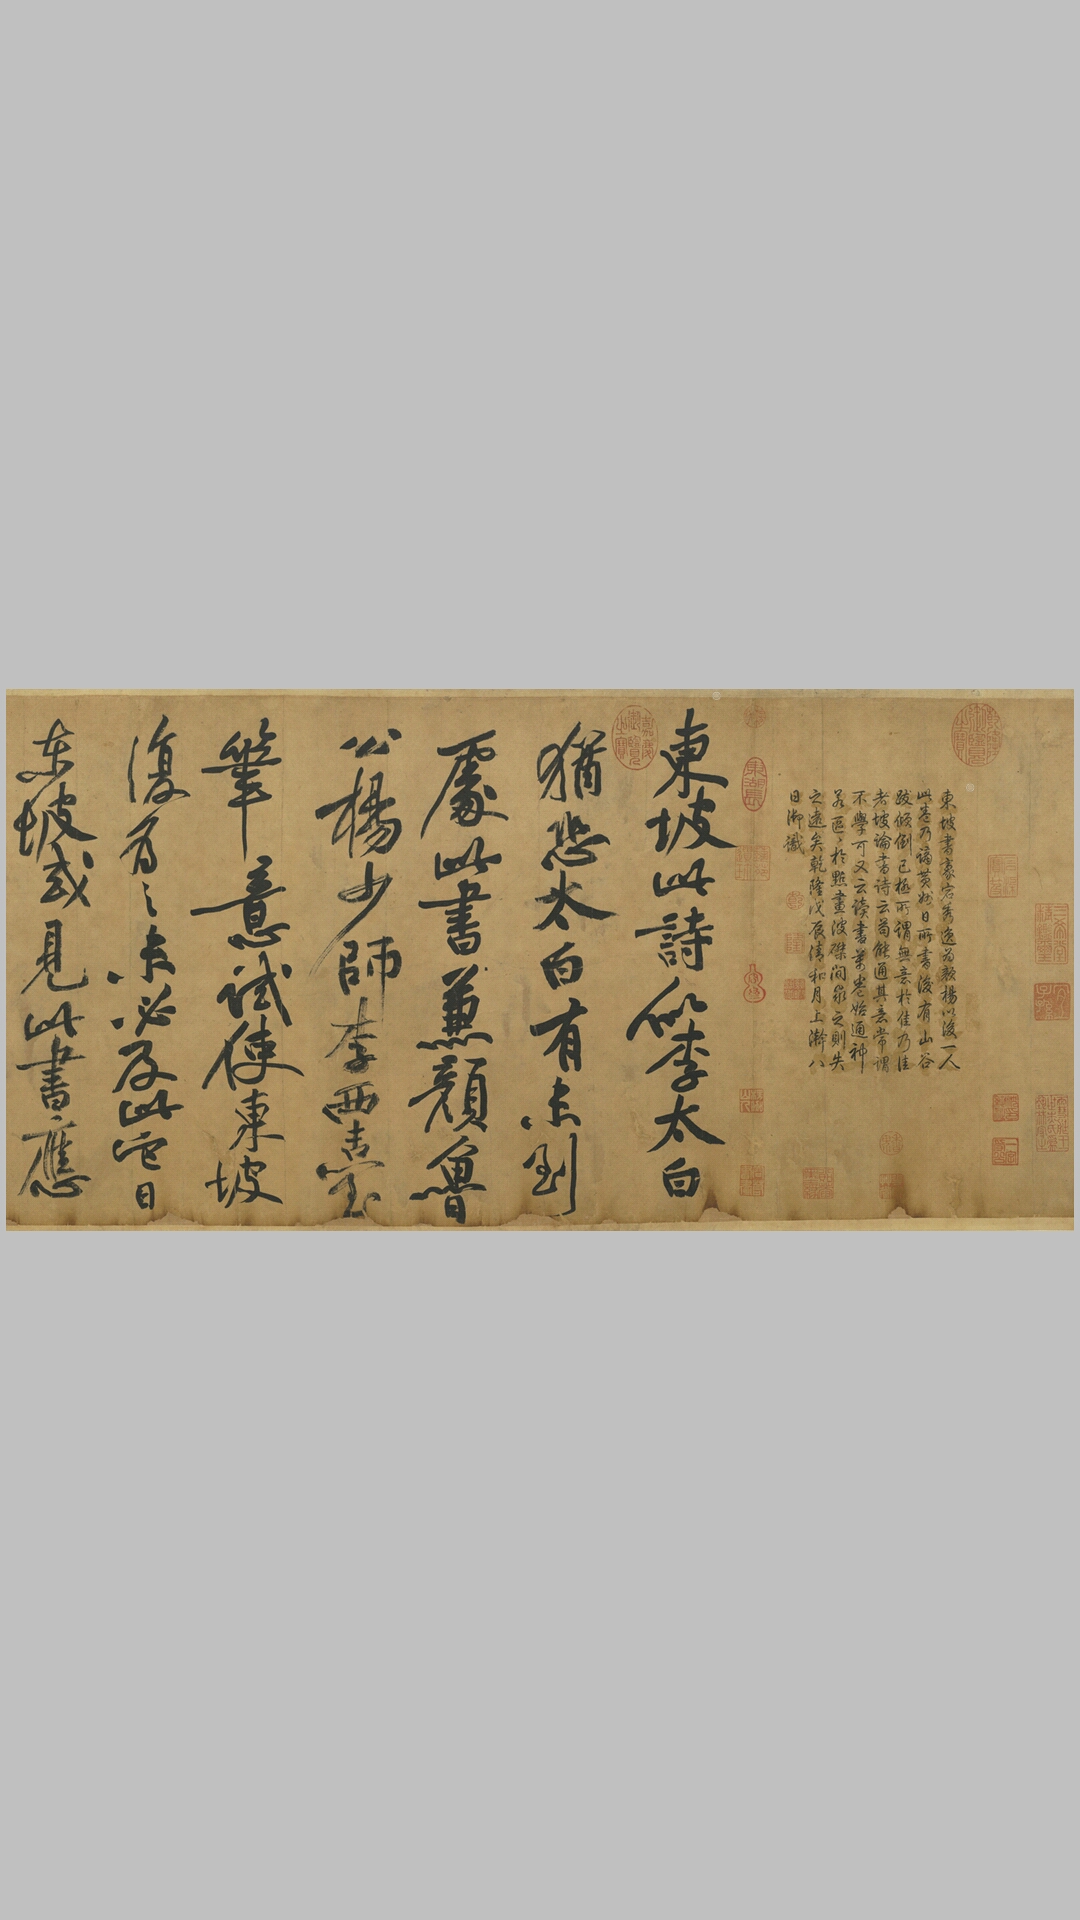 乾隆御覽之寶
東坡書豪宕秀逸為顏楊以後一人
此卷乃謫黃州日所書後有山谷
跋傾倒已極所謂無意於佳乃佳
者坡論書詩云苟能通其意常謂
不學可又云讀書萬卷始通神
若區〻於點畫波磔間求之則失
之遠矣乾隆戊辰清和月上澣八
日御識
嘉慶御覽之寶
東坡此詩似李太白
猶恐太白有未到
處此書兼顏魯
公楊少師李西臺
筆意試使東坡
復為之未必及此它日
東坡或見此書應